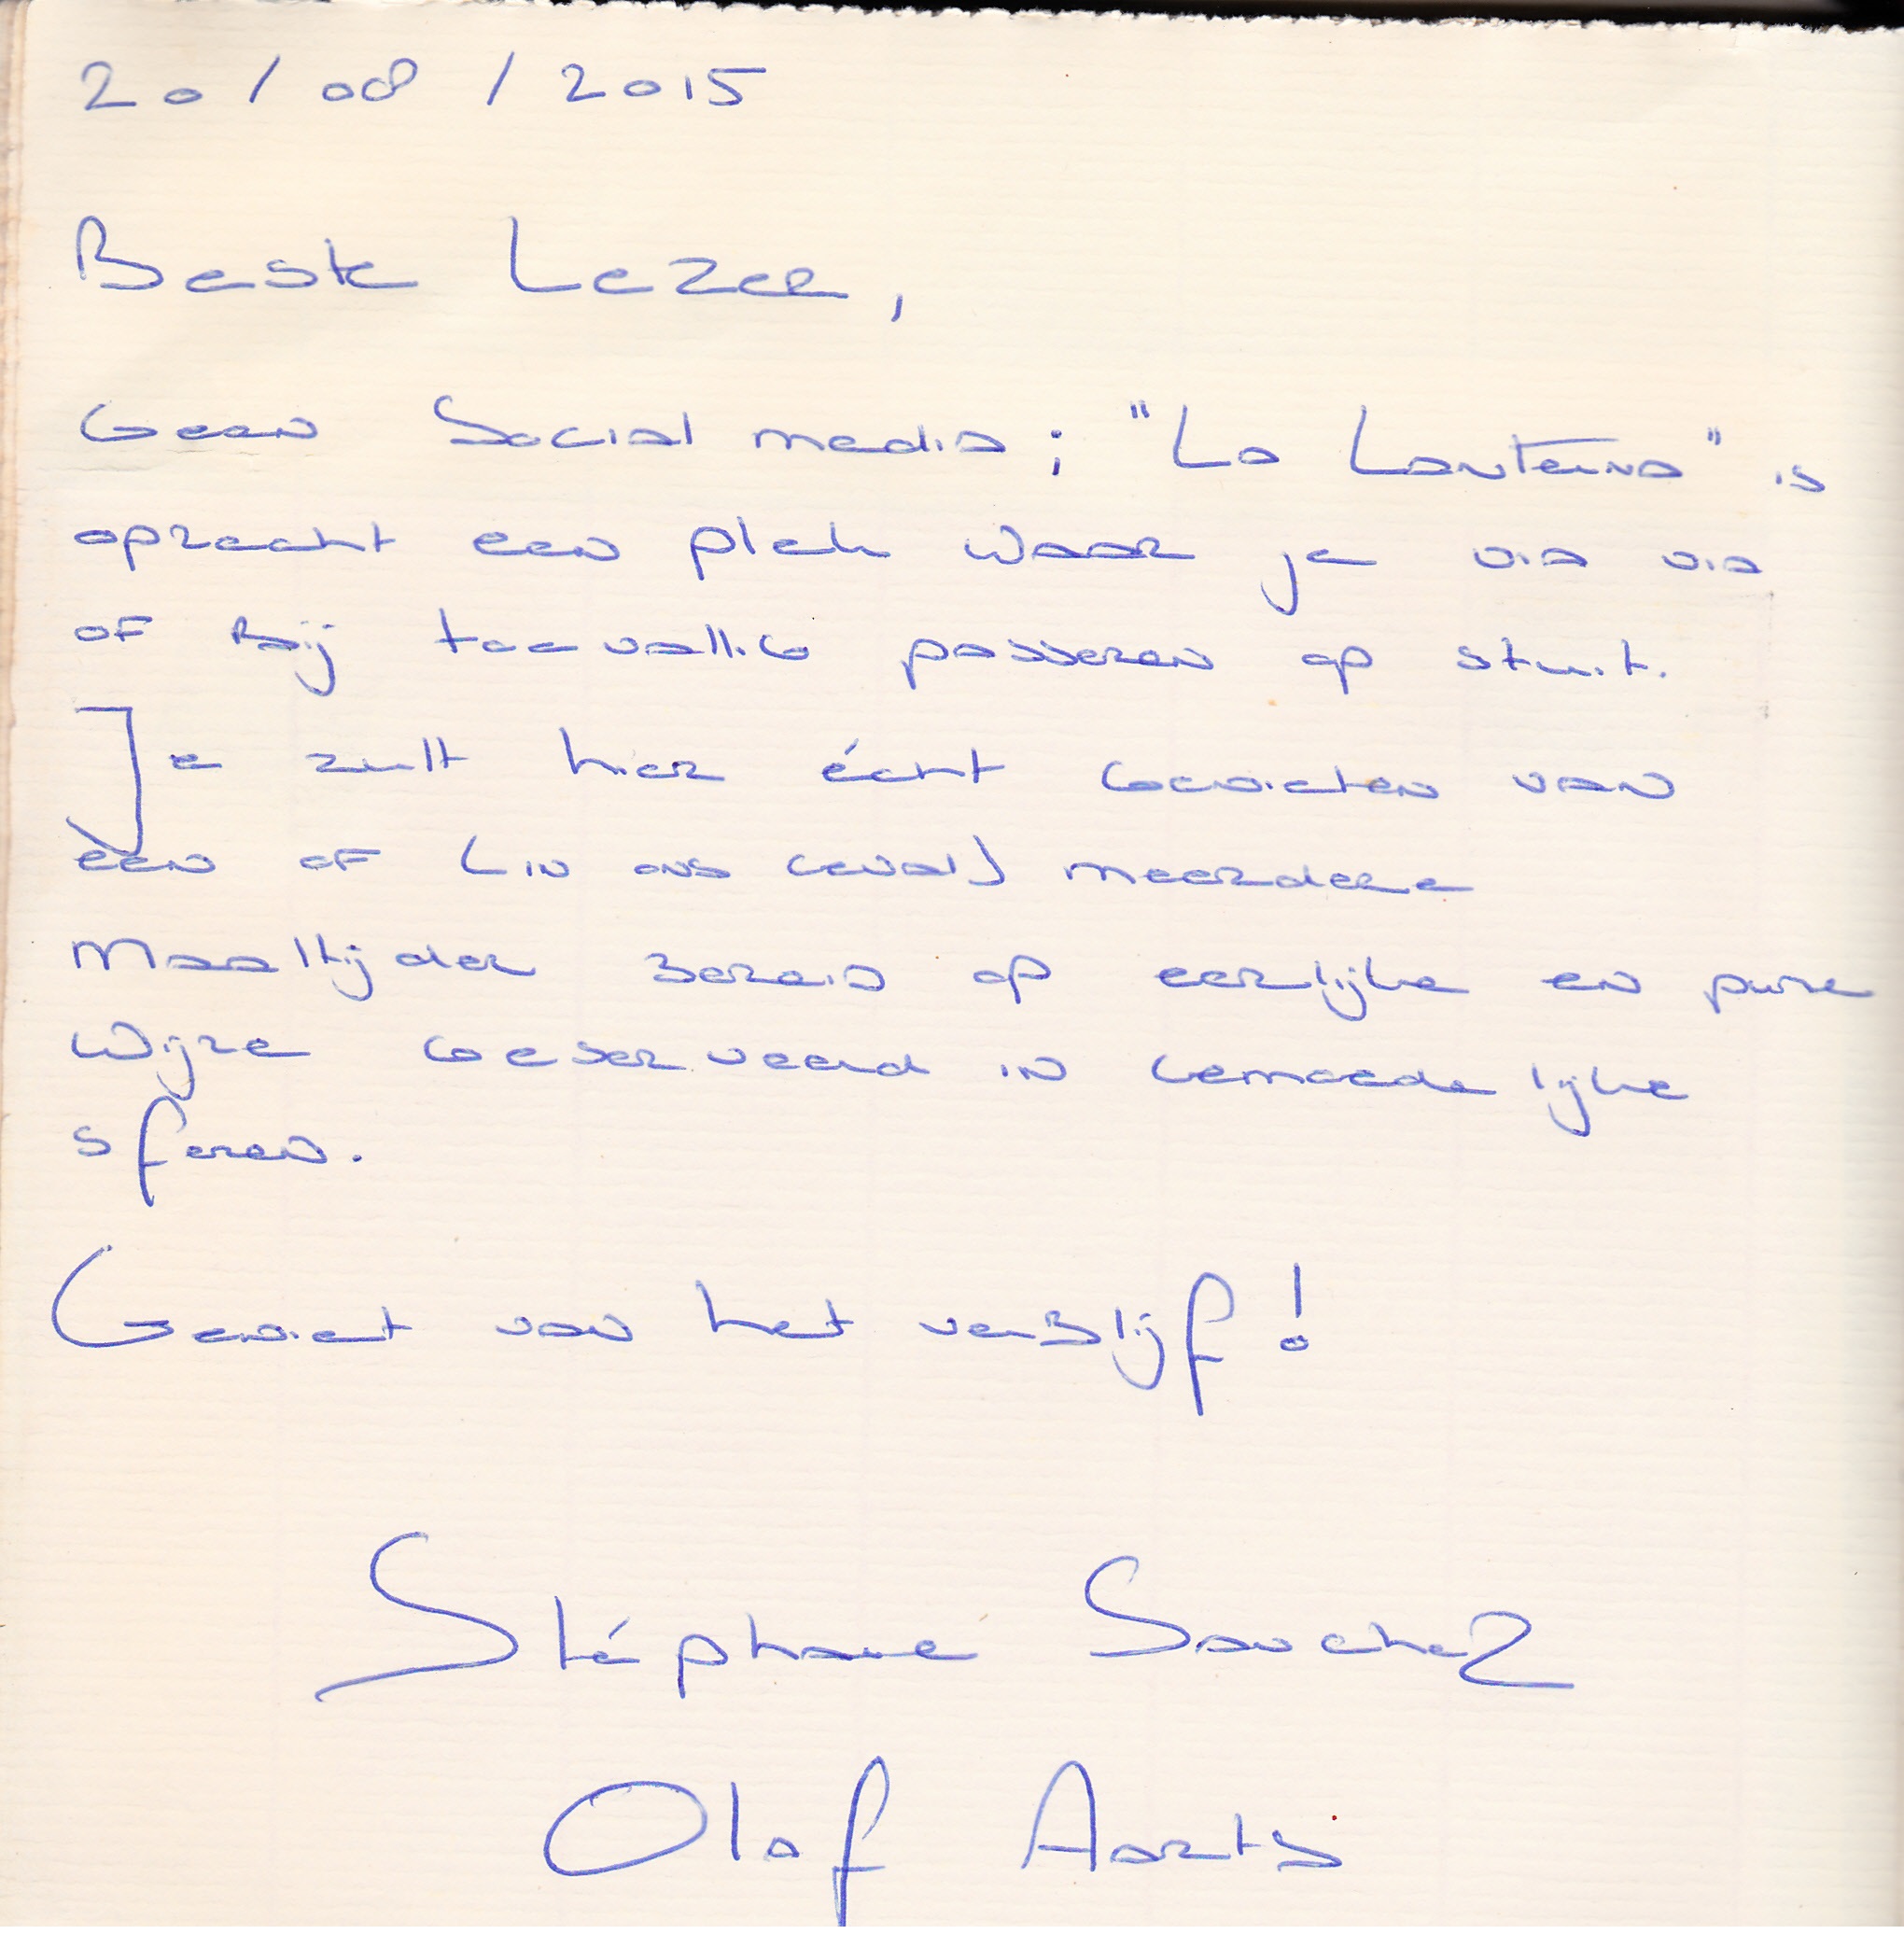 20/08/2015
Beste Lezer,
Geen Social media; "La Lanterna" is
oprecht een plek waar je via via
of bij toevallig passeren op stuit.
Je zult hier écht genieten van
één of (in ons geval) meerdere
Maaltijden bereid op eerlijke en pure
Wijze geserveerd in gemoedelijke
sferen.
Geniet van het verblijf!
Stéphane Sanchez
Olaf Aarts